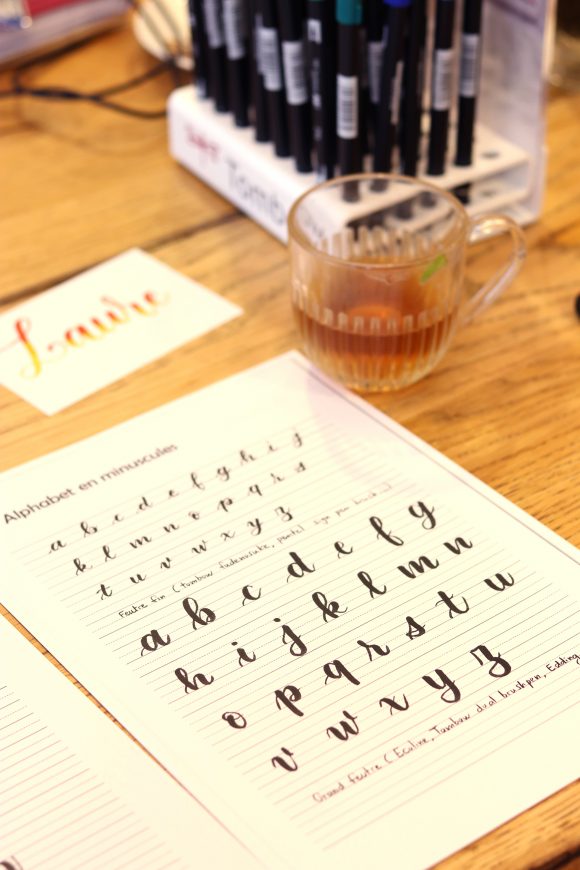 Tomb
Laure
Alphabet en minuscules
a b c d e f g h i j
k l m n o p q r s
t u v w x y z
Feutre fin (Tombow fudenosuke, pentel sign pen brush
a b c d e f g
h i j k l m n
o p q r s t u
v w x y z
Grand feutre (Ecoline, Tombow dual brushpen, Edding